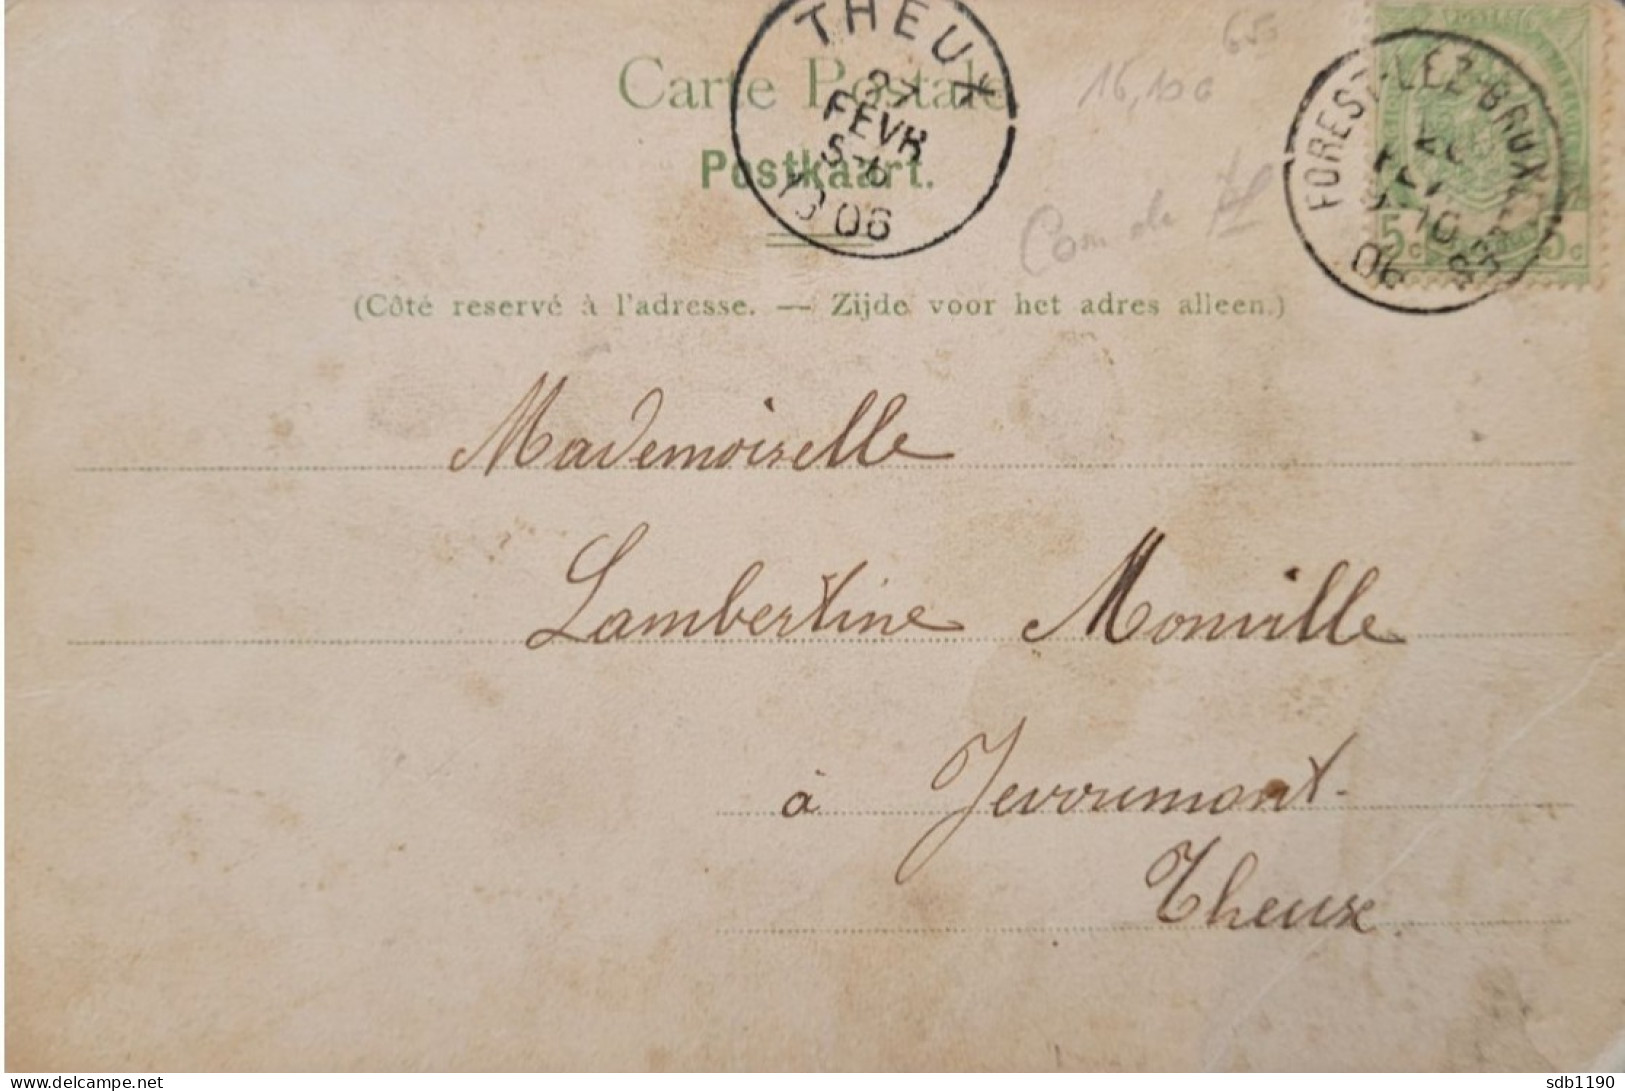 THEUX
27
FEVR
5-6
1906
65
16,100
FOREST-LEZ-BRUX
10
06
5c 5c
Carte Postale
Postkaart.
Com de
(Côté reservé à l'adresse. — Zijde voor het adres alleen.)
Mademoiselle
Lambertine Monville
à Jevoumont
Theux.
www.delcampe.net
sdb1190